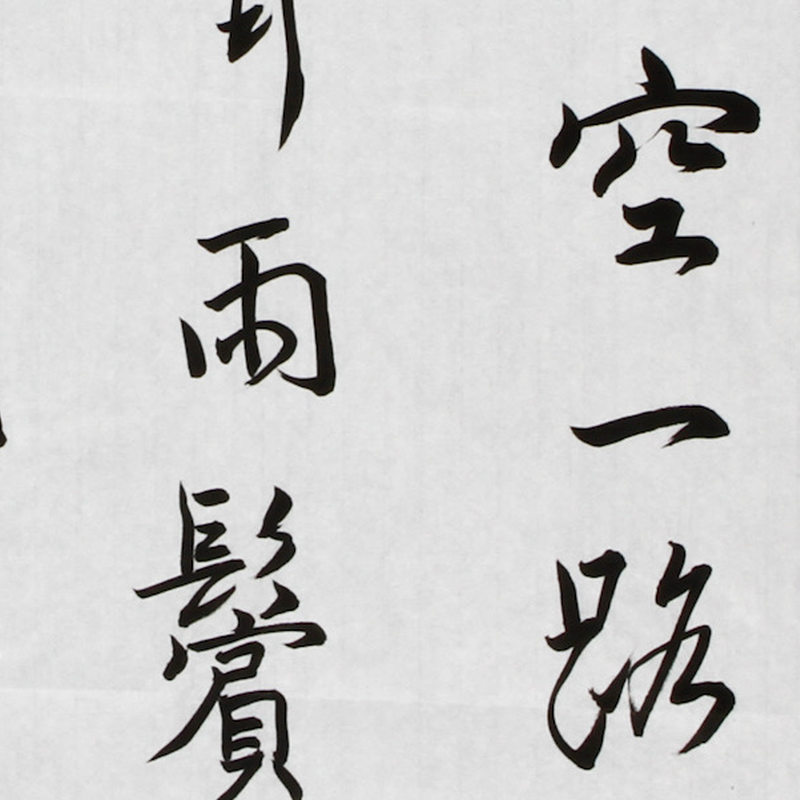 空一路
兩鬢